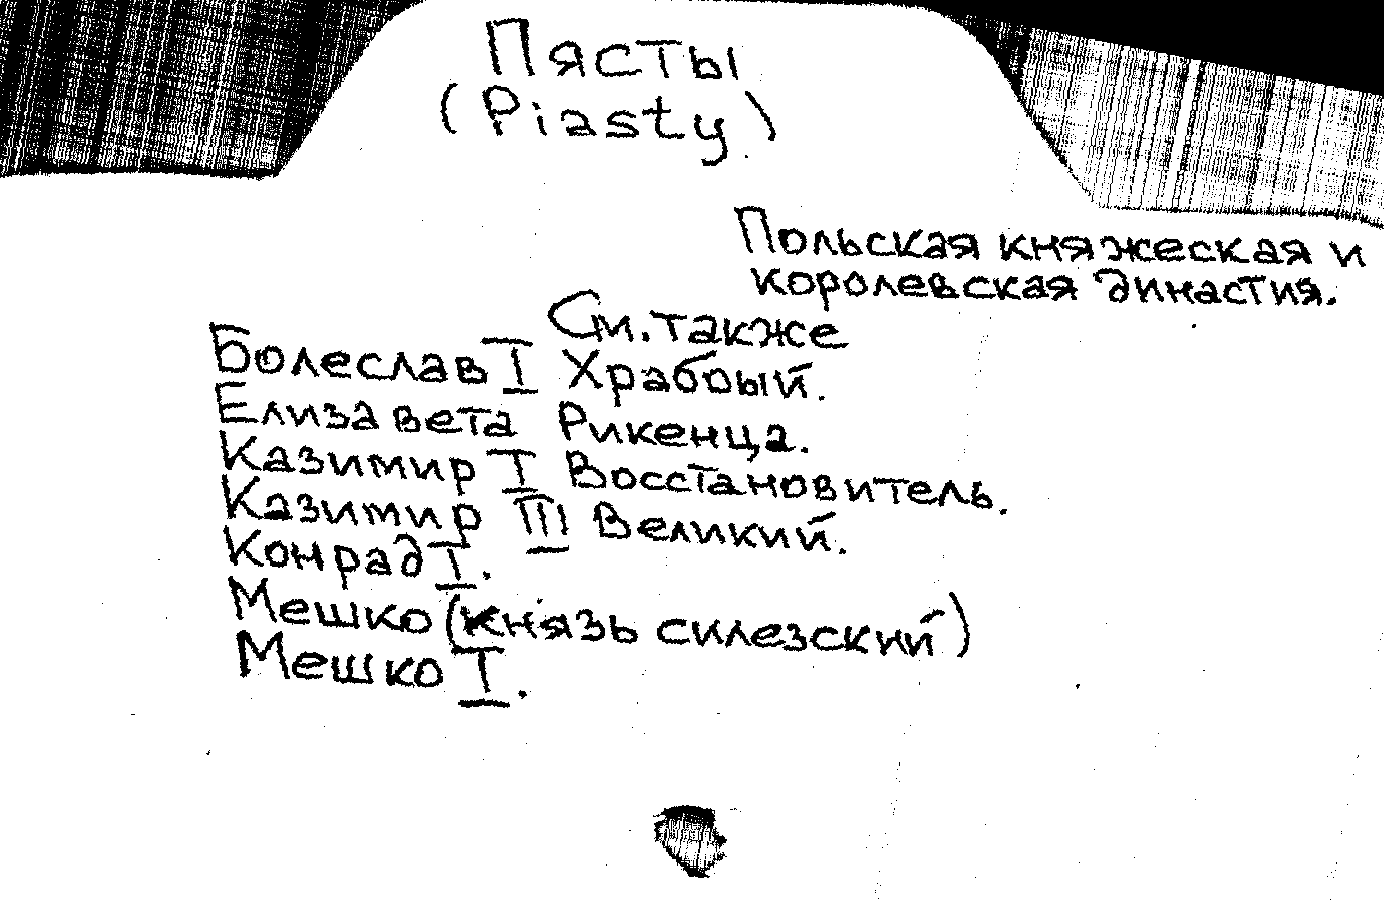 Пясты
(Piasty)
Польская княжеская и
королевская династия.
См. также
Болеслав I Храбрый.
Елизавета Рикенца.
Казимир I Восстановитель.
Казимир III Великий.
Конрад I.
Мешко (князь силезский)
Мешко I.